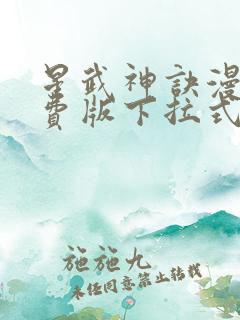 星武神訣漫
費版下拉式
施施九
未经同意禁止转载